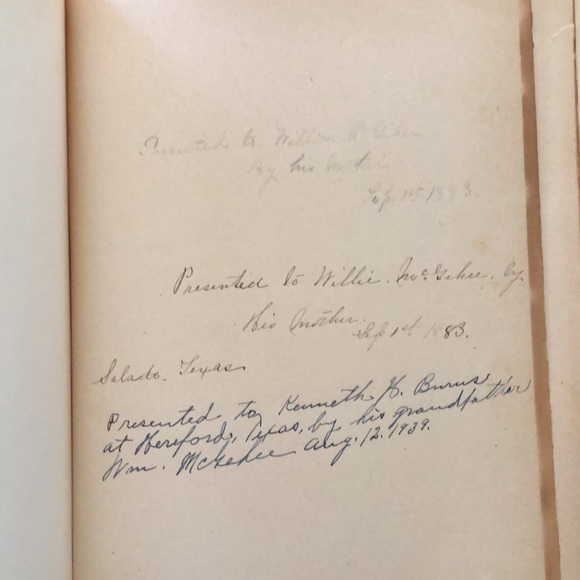 Presented to Willie McGehee
By his Mother
Sep 1st 1883.
Presented to Willie. McGehee. by
His Mother.
Sep 1st 1883.
Salado. Texas
Presented to Kenneth H. Burns
at Hereford, Texas, by his grandfather
Wm. McGehee Aug. 12. 1939.